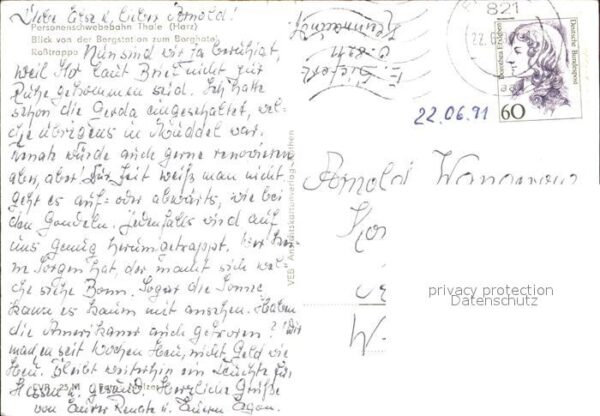 Liebe Elsa u. lieber Arnold!
Personenschwebebahn Thale (Harz)
Blick von der Bergstation zum Berghotel
Roßtrappe
Nun sind wir ja beruhigt,
weil Ihr laut Brief nicht zur
Ruhe gekommen seid. Ich hatte
schon die Gerda eingeschaltet, wel-
che übrigens in war.
Renate würde auch gerne renovieren
aber, aber! Zur Zeit weiß man nicht
geht es auf- oder abwärts, wie bei
den Gondeln. Jedenfalls wird auf
uns genug herumgetrappt. Wer kei-
ne Sorgen hat, der macht sich wel-
che siehe Bonn. Sogar die Sonne
kann es kaum mit ansehen. Haben
die Amerikaner auch gefroren? Wir
machen seit Wochen Heu, nicht Geld wie
Heu. Bleibt weiterhin ein Leuchte für
Hessen u. gesund! Herzliche Grüße
von Eurer Renate u. Eurem Egon.
EVP -,25 M
VEB Ansichtskartenverlag
821
22.
22.06.91
Deutsche Bundespost
60
Arnold
W.
privacy protection
Datenschutz